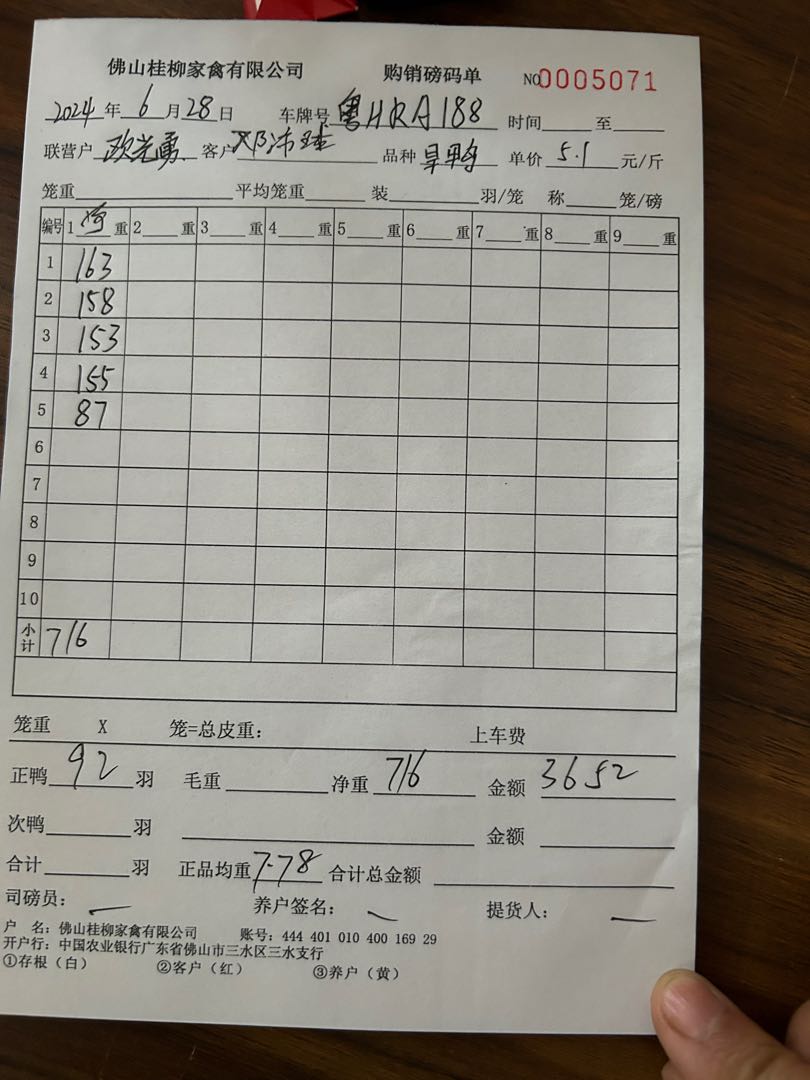 佛山桂柳家禽有限公司 购销磅码单 NO 0005071
2024年6月28日 车牌号 粤HRA188 时间 至
联营户 欧光勇 客户 邓沛 品种 旱鸭 单价 5.1 元/斤
笼重 平均笼重 装 羽/笼 称 笼/磅
编号 1 净 重 2 重 3 重 4 重 5 重 6 重 7 重 8 重 9 重
1 163
2 158
3 153
4 155
5 87
6
7
8
9
10
小计 716
笼重 X 笼=总皮重: 上车费
正鸭 92 羽 毛重 净重 716 金额 3652
次鸭 羽 金额
合计 羽 正品均重 7.78 合计总金额
司磅员: 养户签名: 提货人:
户 名: 佛山桂柳家禽有限公司 账号: 444 401 010 400 169 29
开户行: 中国农业银行广东省佛山市三水区三水支行
①存根(白) ②客户(红) ③养户(黄)